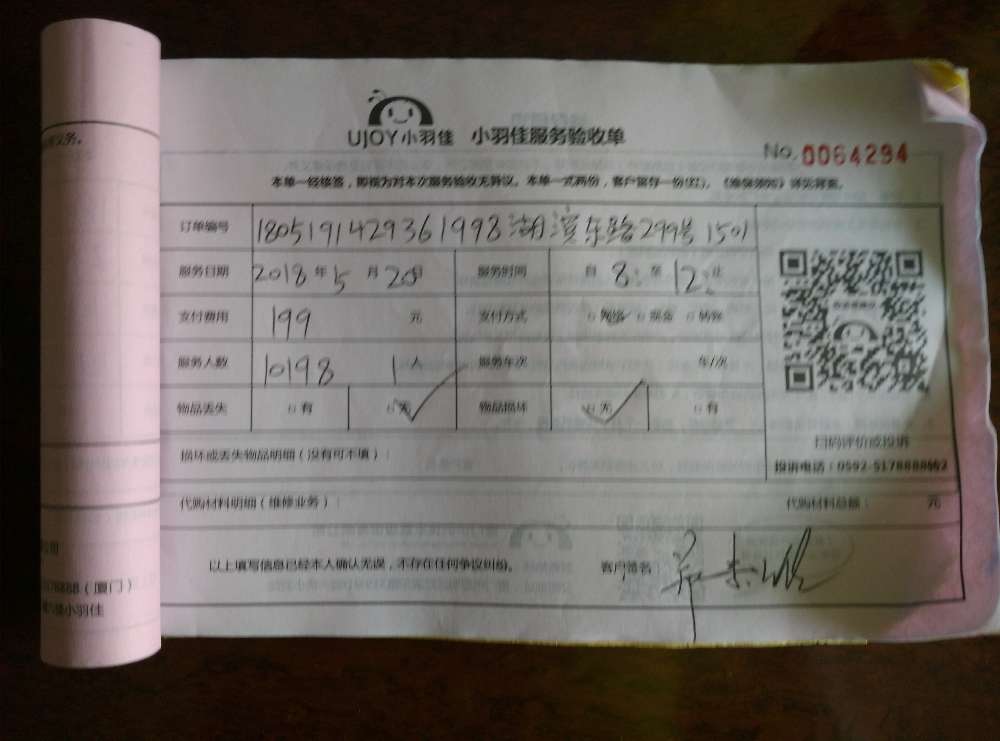 义务。
UJOY小羽佳 小羽佳服务验收单
No. 0064294
本单一经接签，即视为对本次服务验收无异议。本单一式两份，客户留存一份(红)。《维保须知》详见背面。
订单编号 1805191429361998 湖滨东路299号1501
服务日期 2018年5月20日 服务时间 自 8: 至 12: 止
支付费用 199 元 支付方式 □网络 □现金 □转账
服务人数 10198 1人 服务车次 车/次
物品丢失 □有 □无 物品损坏 □无 □有
扫码评价或投诉
损坏或丢失物品明细（没有可不填）：
投诉电话：0592-5178888转2
代购材料明细（维修业务）： 代购材料总额： 元
以上填写信息已经本人确认无误，不存在任何争议纠纷。 客户签名：
（厦门）
小羽佳